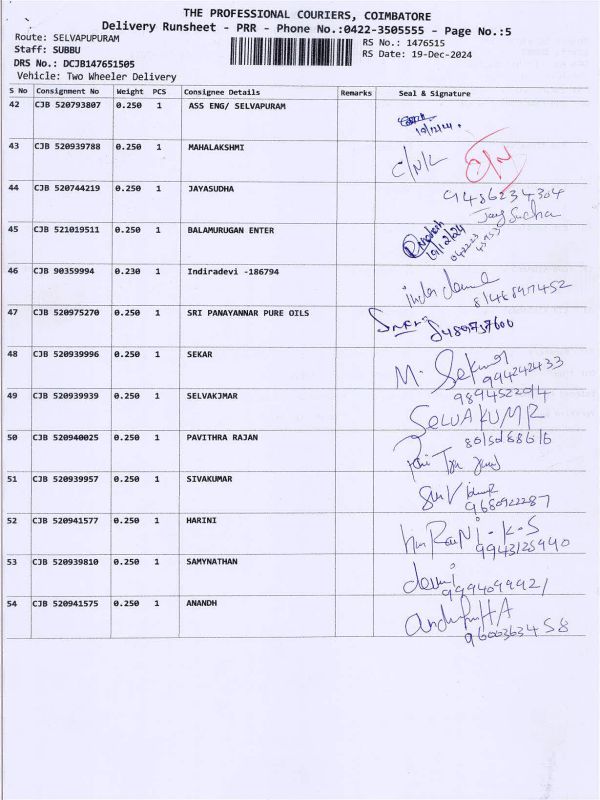 THE PROFESSIONAL COURIERS, COIMBATORE
Delivery Runsheet - PRR - Phone No.:0422-3505555 - Page No.:5
Route: SELVAPUPURAM
RS No.: 1476515
Staff: SUBBU
RS Date: 19-Dec-2024
DRS No.: DCJB147651505
Vehicle: Two Wheeler Delivery
S No Consignment No Weight PCS Consignee Details Remarks Seal & Signature
42 CJB 520793807 0.250 1 ASS ENG/ SELVAPURAM
43 CJB 520939788 0.250 1 MAHALAKSHMI C/N/L
44 CJB 520744219 0.250 1 JAYASUDHA 9486234304
Jaya Sudha
45 CJB 521019511 0.250 1 BALAMURUGAN ENTER 19/12/24
46 CJB 90359994 0.230 1 Indiradevi -186794
8146897452
47 CJB 520975270 0.250 1 SRI PANAYANNAR PURE OILS
48 CJB 520939996 0.250 1 SEKAR M. Sekar
994242433
49 CJB 520939939 0.250 1 SELVAKJMAR 9894522014
SELVAKUMR
50 CJB 520940025 0.250 1 PAVITHRA RAJAN
51 CJB 520939957 0.250 1 SIVAKUMAR
9680922287
52 CJB 520941577 0.250 1 HARINI
9943125990
53 CJB 520939810 0.250 1 SAMYNATHAN
9994099921
54 CJB 520941575 0.250 1 ANANDH
9600363458